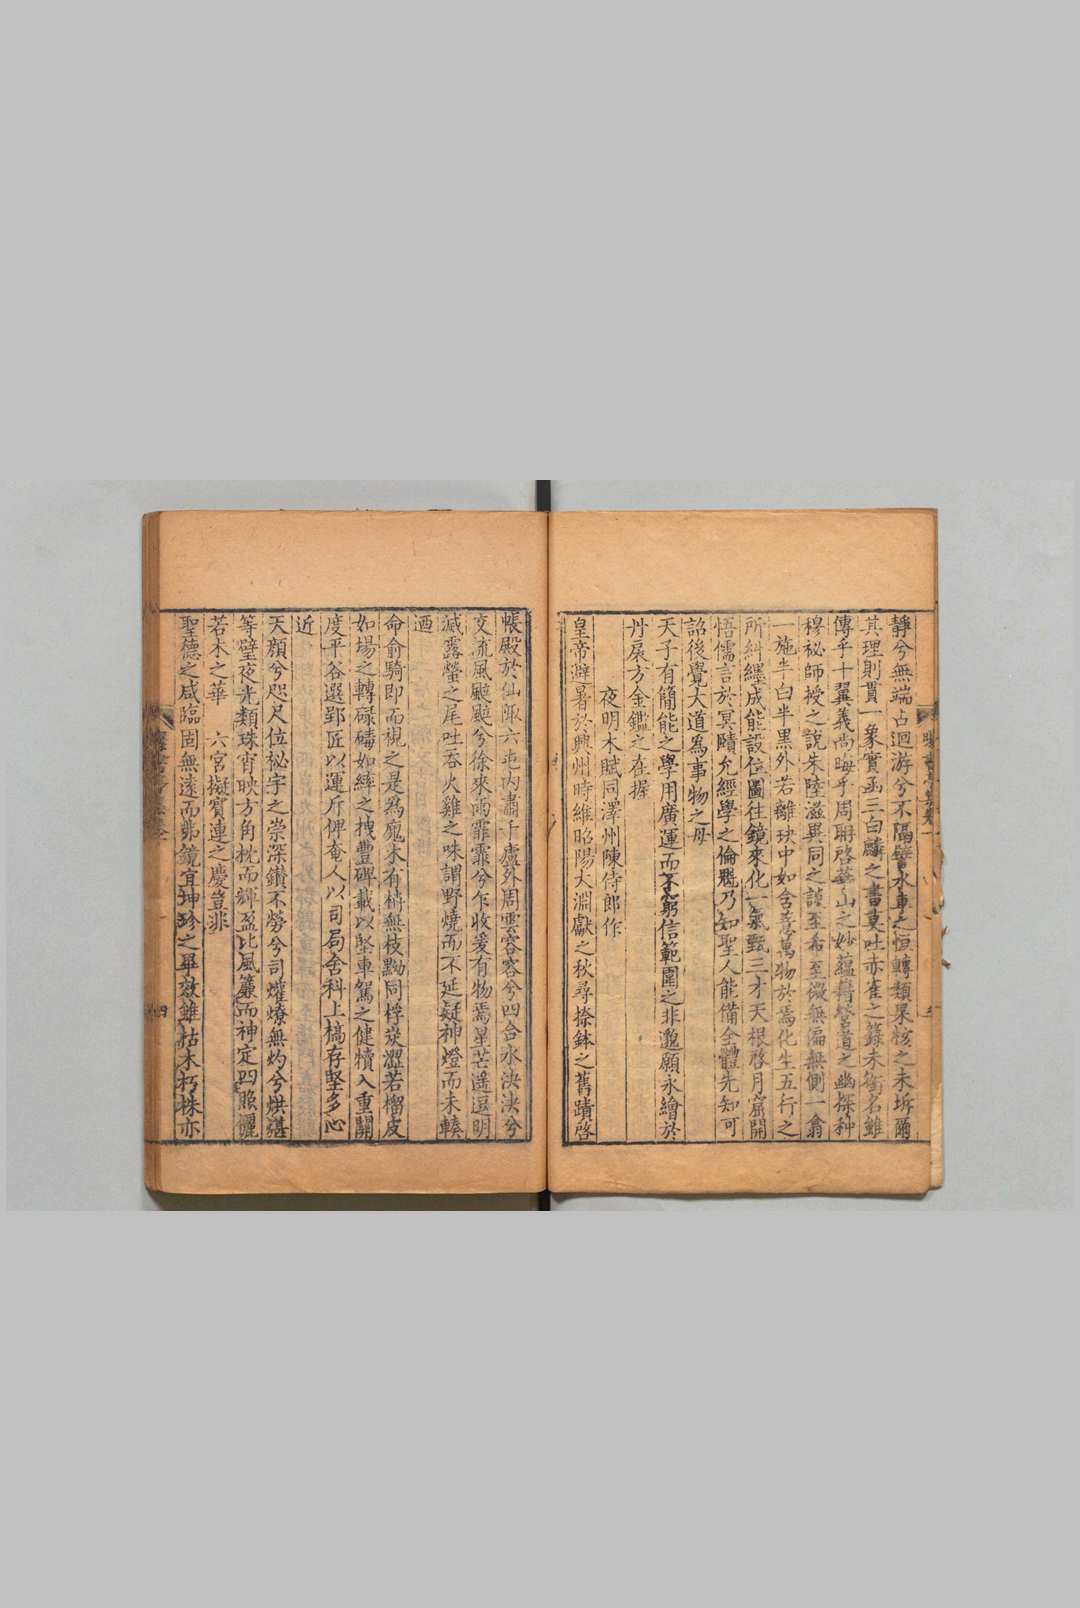 靜兮無端占迴游兮不隔譬水車之恒轉類果核之未坼爾
其理則貫一象實函三白麟之書莫吐赤雀之籙未銜名雖
傳乎十翼義尚晦乎周聃啓華山之妙蘊藉營道之幽探种
穆祕師授之說朱陸滋異同之談至希至微無偏無側一翕
一施半白半黑外若離玦中如含薏萬物於焉化生五行之
所糾纆成能設位圖往鏡來化一氣甄三才天根啓月窟開
悟儒言於冥賾允經學之倫魁乃知聖人能備全體先知可
詔後覺大道為事物之母
天子有簡能之學用廣運而不窮信範圍之非邈願永繪於
丹扆方金鑑之在握
夜明木賦同澤州陳侍郎作
皇帝避暑於興州時維昭陽大淵獻之秋尋捺鉢之舊蹟啓
帳殿於仙陬六屯內肅千廬外周雲容容兮四合水泱泱兮
交流風颸颸兮徐來雨霏霏兮乍收爰有物焉星芒遙逗明
滅露螢之尾吐吞火雞之咮謂野燒而不延疑神燈而未輳
迺
命俞騎即而視之是為魔木有梢無枝黝同桴炭澀若榴皮
如場之轉碌碡如綍之拽豐碑載以堅車駕之健犢入重關
度平谷選郢匠以運斤俾奄人以司局舍科上槁存堅多心
近
天顏兮咫尺位祕宇之崇深鑽不勞兮司爟燎無灼兮烘煁
等璧夜光類珠宵映方角枕而輝盈比風簾而神定四照儷
若木之華 六宮擬寶連之慶豈非
聖德之咸臨固無遠而弗鏡宜坤珍之畢效雖枯木朽株亦